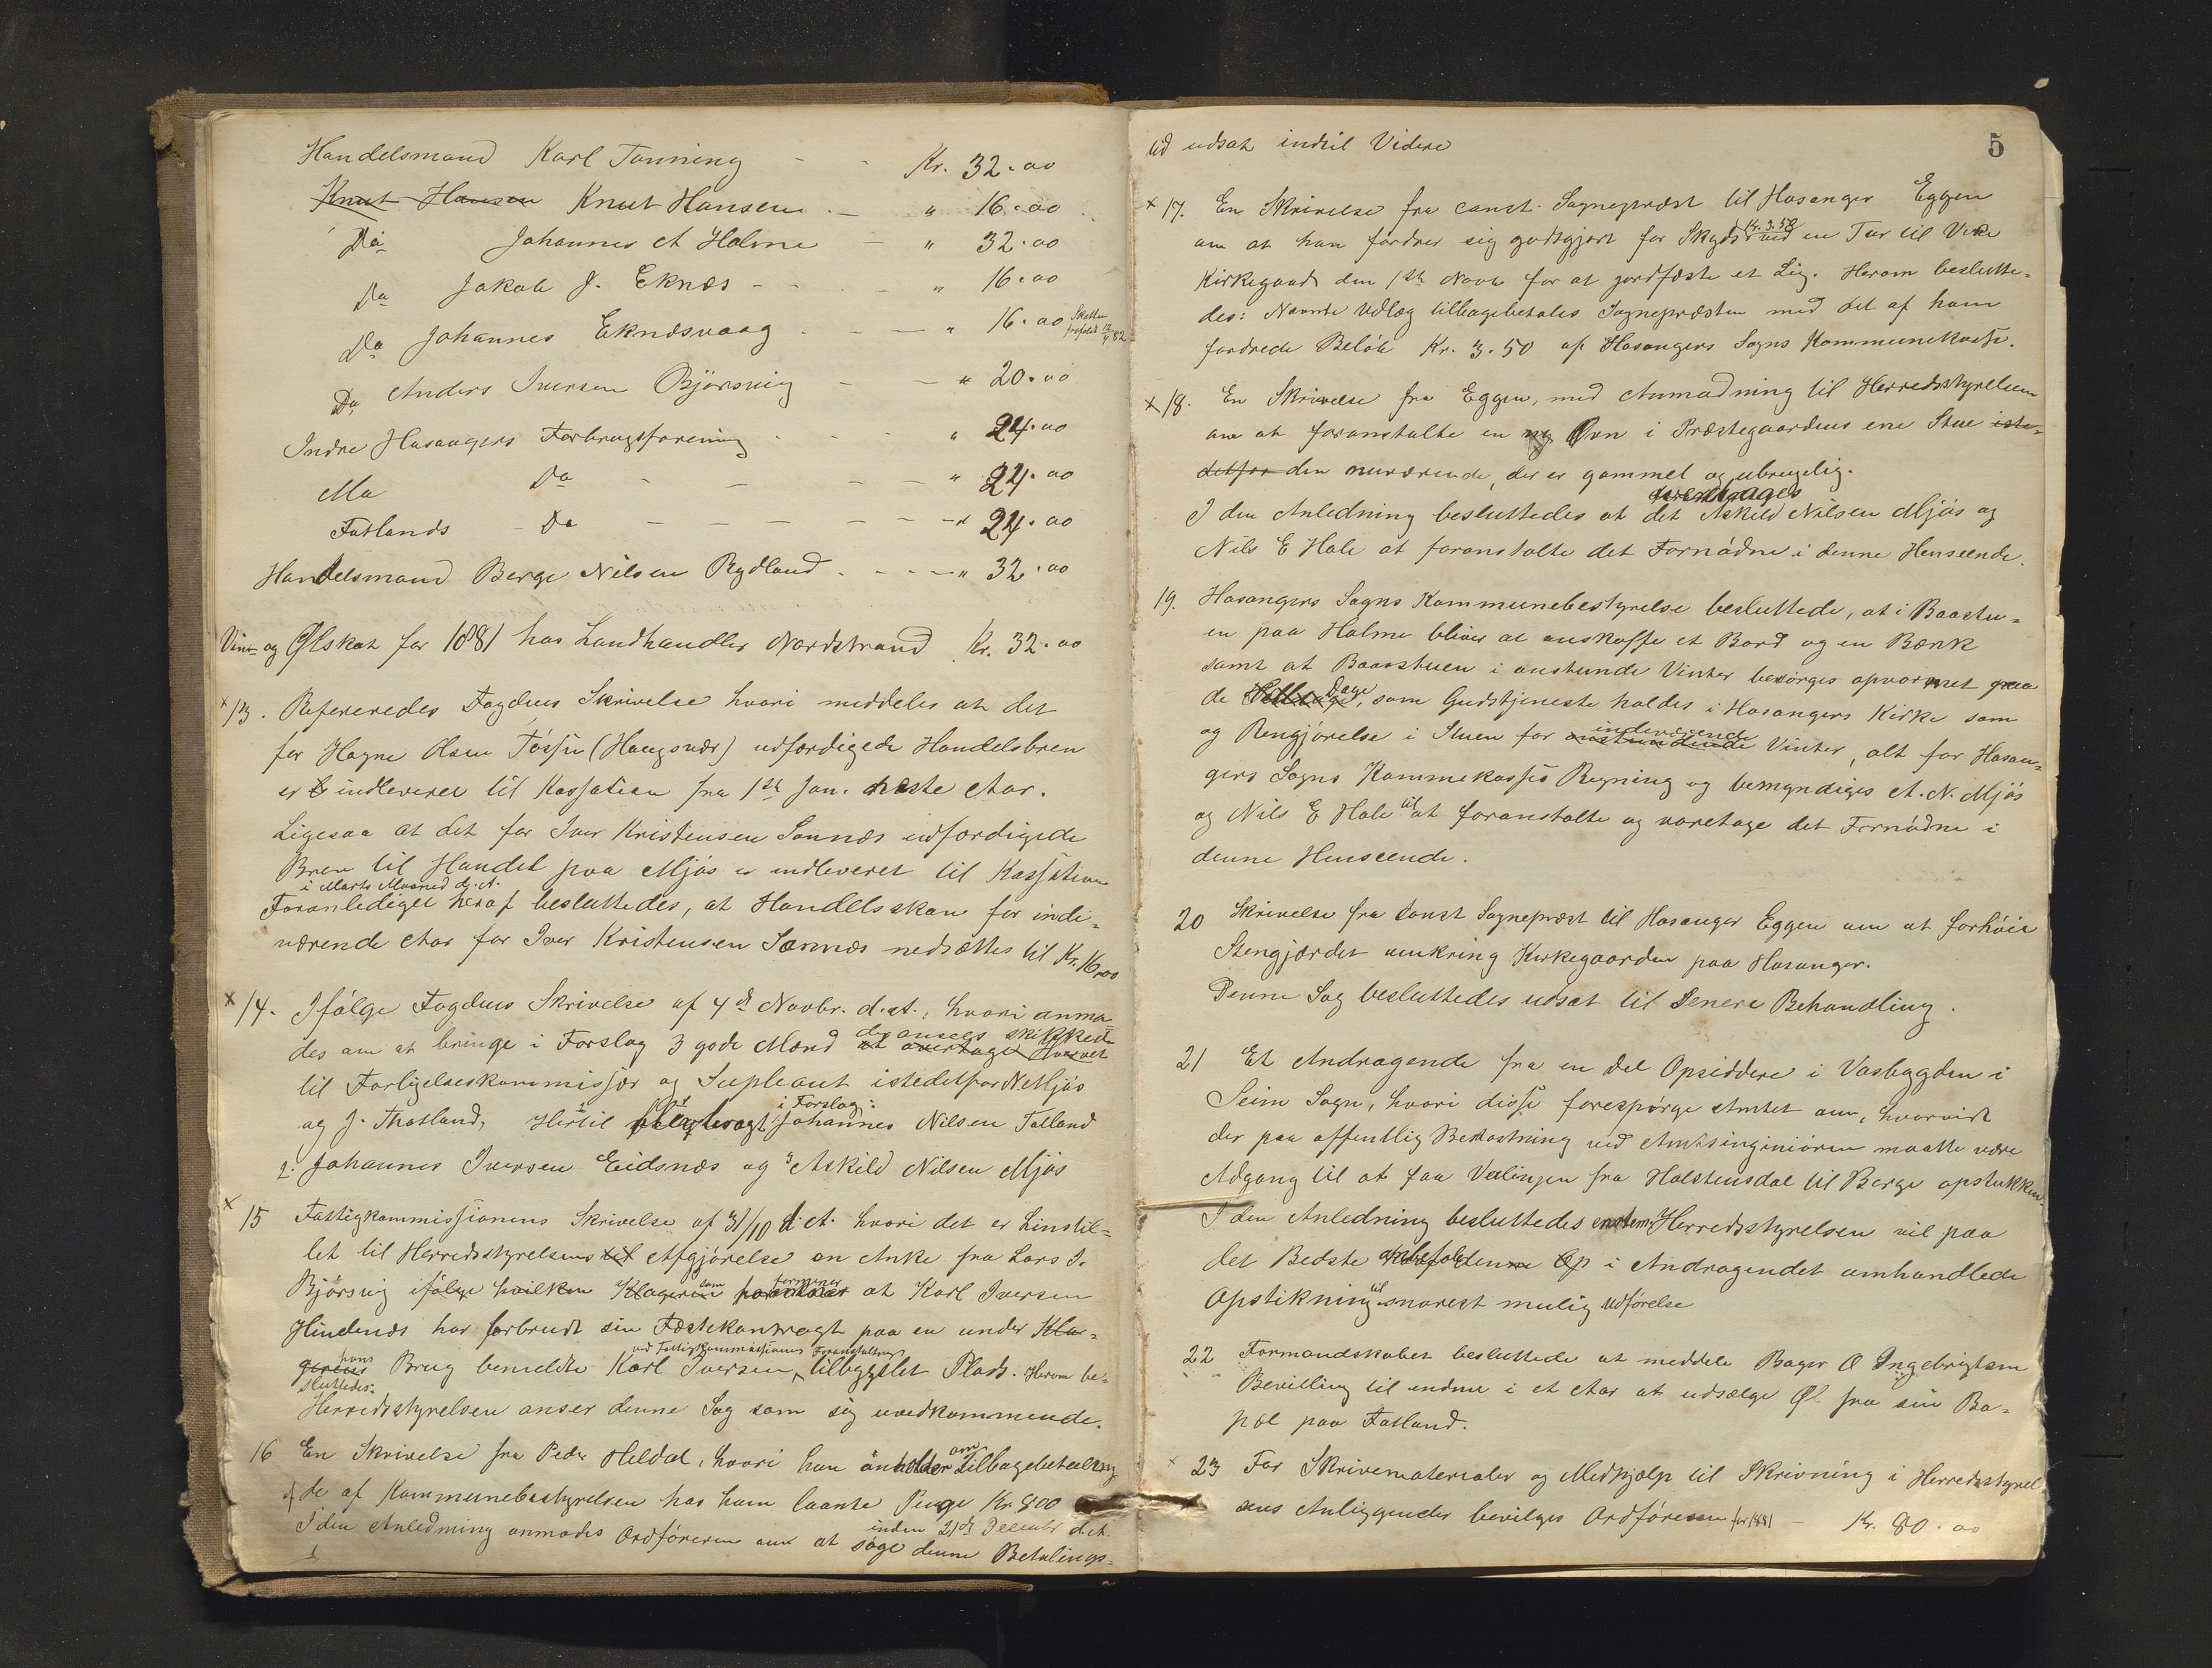 Handelsmand Karl Tonning - - Kr. 32.00
Knut Hansen Knut Hansen - " 16.00
Do Johannes A Holme - " 32.00
Do Jakob J. Eknæs - - - " 16.00
Do Johannes Eknæsvaag - - - " 16.00 Skatten frafaldt
Do Anders Iversen Bjørsvig - - " 20.00
Indre Hosangers Forbrugsforening - - - " 24.00
Mo Do - - - - " 24.00
Fatlands - Do - - - - - " 24.00
Handelsmand Berge Nilsen Rydland - - - " 32.00
Vin- og Ølskat for 1881 har Landhandler Nordstrand Kr. 32.00
x 13. Refereredes Fogdens Skrivelse hvori meddeles at det
for Hagne Olsen Tøsse (Haugsvær) udfærdigede Handelsbrev
er indleveret til Kassation fra 1ste Jan. næste Aar.
Ligesaa at det for Iver Kristensen Sannæs udfærdigede
Brev til Handel paa Mjøs er indleveret til Kassation
i Marts Maaned d. A.
Foranlediget heraf besluttedes, at Handelsskan for inde-
værende Aar for Iver Kristensen Sannæs nedsættes til Kr. 16.00
x 14. Ifølge Fogdens Skrivelse af 4de Novbr. d. A., hvori anmo-
des om at bringe i Forslag 3 gode Mænd der ansees skikkede at overtage Hvervet
til Forligelseskommissær og Supleant istedetfor N Mjøs
og J. Thotland, Hertil i Forslag: 1 Johannes Nilsen Tolland
2. Johannes Iversen Eidsnæs og 3 Askild Nilsen Mjøs
x 15 Fattigkommissionens Skrivelse af 31/10 d. A. hvori det er Linstil-
let til Herredsstyrelsens til Afgjørelse en Anke fra Lars I.
Bjørsvig ifølge hvilken Klageren som formener at Karl Iversen
Hindenæs har forbrudt sin Fæstekontragt paa en under Kla-
gerens hans Brug bemeldte Karl Iversen, ved Fattigkommissionens Foranstaltning tilbygslet Plads. Herom be-
sluttedes:
Herredsstyrelsen anser denne Sag som sig uvedkommende.
16 En Skrivelse fra Peder Heldal, hvori han anholder om Tilbagebetaling
af de af Kommunebestyrelsen hos ham laante Penge Kr. 800
I den Anledning anmodes Ordføreren om at søge inden 21de Decembr d. A. denne Betalings-
5
tid udsat indtil Videre
x 17. En Skrivelse fra const. Sognepræst til Hosanger Eggen
om at han fordrer sig godtgjort for Skyds Kr. 3.50 ved en Tur til Vike
Kirkegaard den 1ste Novb for at jordfæste et Lig. Herom beslutte-
des: Nævnte Udlæg tilbagebetales Sognepræsten med det af ham
fordrede Beløb Kr. 3.50 af Hosangers Sogns Kommunekasse.
x 18. En Skrivelse fra Eggen, med Anmodning til Herredsstyrelsen
om at foranstalte en ny Ovn i Præstegaardens ene Stue iste-
detfor den nuværende, der er gammel og ubrugelig.
I den Anledning besluttedes at det overdrages Askild Nilsen Mjøs og
Nils E Hole at foranstalte det Fornødne i denne Henseende.
19. Hosangers Sogns Kommunebestyrelse besluttede, at i Baastu-
en paa Holme bliver at anskaffe et Bord og en Bænk
samt at Baastuen i anstunde Vinter besørges opvarmet paa
de Dage, som Gudstjeneste holdes i Hosangers Kirke som
og Rengjørelse i Stuen for anstundende indeværende Vinter, alt for Hosan-
gers Sogns Kommekasses Regning og bemyndiges A. N. Mjøs
og Nils E Hole til at foranstalte og varetage det Fornødne i
denne Henseende.
20 Skrivelse fra Const Sognepræst til Hosanger Eggen om at forhøie
Stengjærdet omkring Kirkegaarden paa Hosanger.
Denne Sag besluttedes udsat til Senere Behandling.
21 Et Andragende fra en del Opsiddere i Vasbygden i
Seim Sogn, hvori disse forespørge Amtet om, hvorvidt
der paa offentlig Bekostning ved Amtsinginiøren maatte være
Adgang til at faa Veilinjen fra Holstensdal til Berge opstukken
I den Anledning besluttedes Herredsstyrelsen vil paa
det Bedste anbefale denne Op i Andragendet omhandlede
Opstikning til snarest mulig Udførelse
22 Formandskabet besluttede at meddele Bager O Ingebrigtsen
Bevilling til endnu i et Aar at udsælge Øl fra sin Bo-
pæl paa Fatland.
x 23 For Skrivematerialer og Medhjælp til Skrivning i Herredsstyrel
sens Anliggender bevilges Ordføreren for 1881 - Kr. 80.00